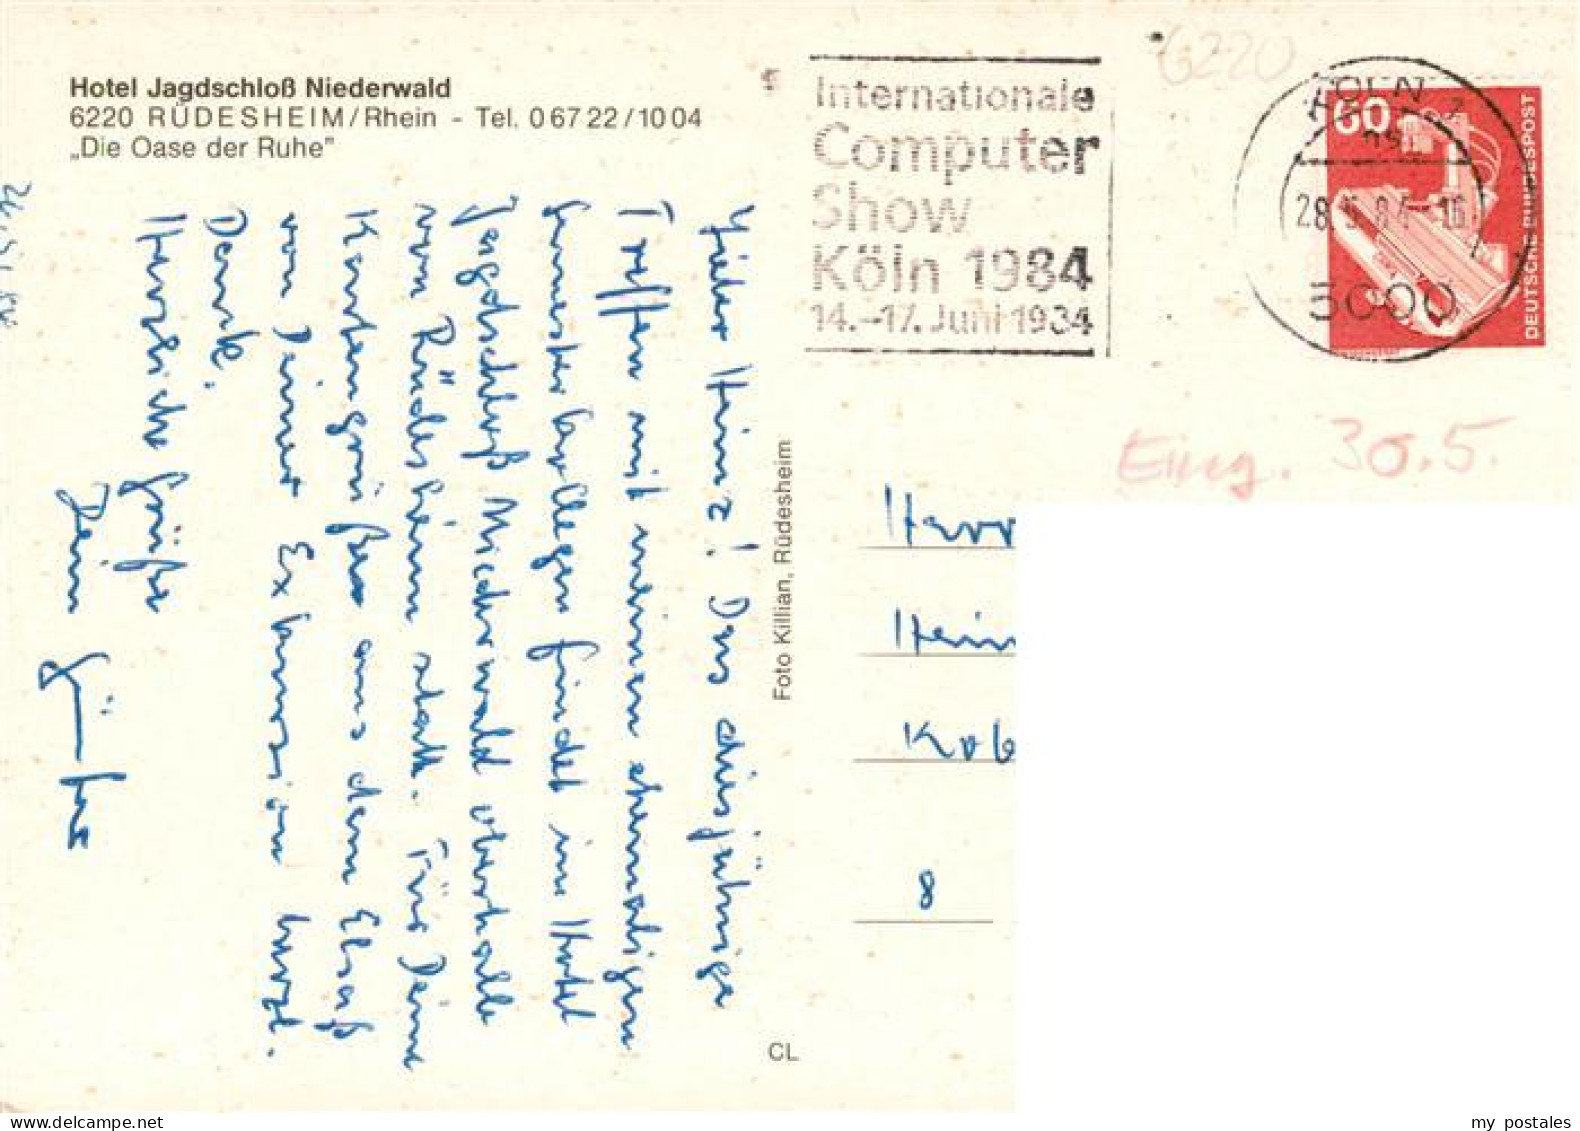 Hotel Jagdschloß Niederwald
6220 RÜDESHEIM/Rhein - Tel. 0 67 22 / 10 04
„Die Oase der Ruhe"
Lieber Heinz! Das diesjährige
Treffen mit meinen ehemaligen
Semesterkollegen findet im Hotel
Jagdschloß Niederwald oberhalb
von Rüdesheim statt. Für Deine
Kartengrüße aus dem Elsaß
von Deiner Exkursion herzl.
Dank.
Herzliche Grüße
Dein
Foto Killian, Rüdesheim
CL
6220
Internationale
Computer
Show
Köln 1984
14.-17. Juni 1984
KÖLN
28.5.84-16
5000
60
DEUTSCHE BUNDESPOST
Eing. 30.5.
Herr
Hein
Kob
8
my postales